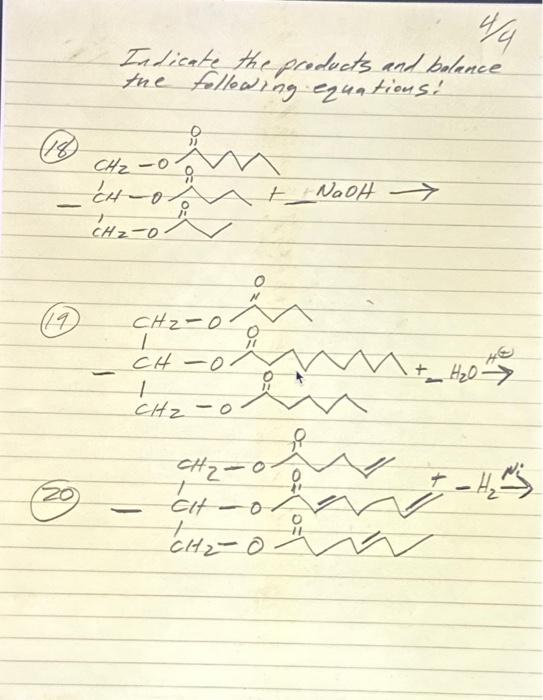 4/4
Indicate the products and balance
the following equations:
18
O
CH2-O
O
_ CH-O + _ NaOH →
O
CH2-O
19
O
CH2-O
O
_ CH-O + _ H2O H⊕ →
O
CH2-O
20
O
CH2-O
O
_ CH-O + _ H2 Ni →
O
CH2-O